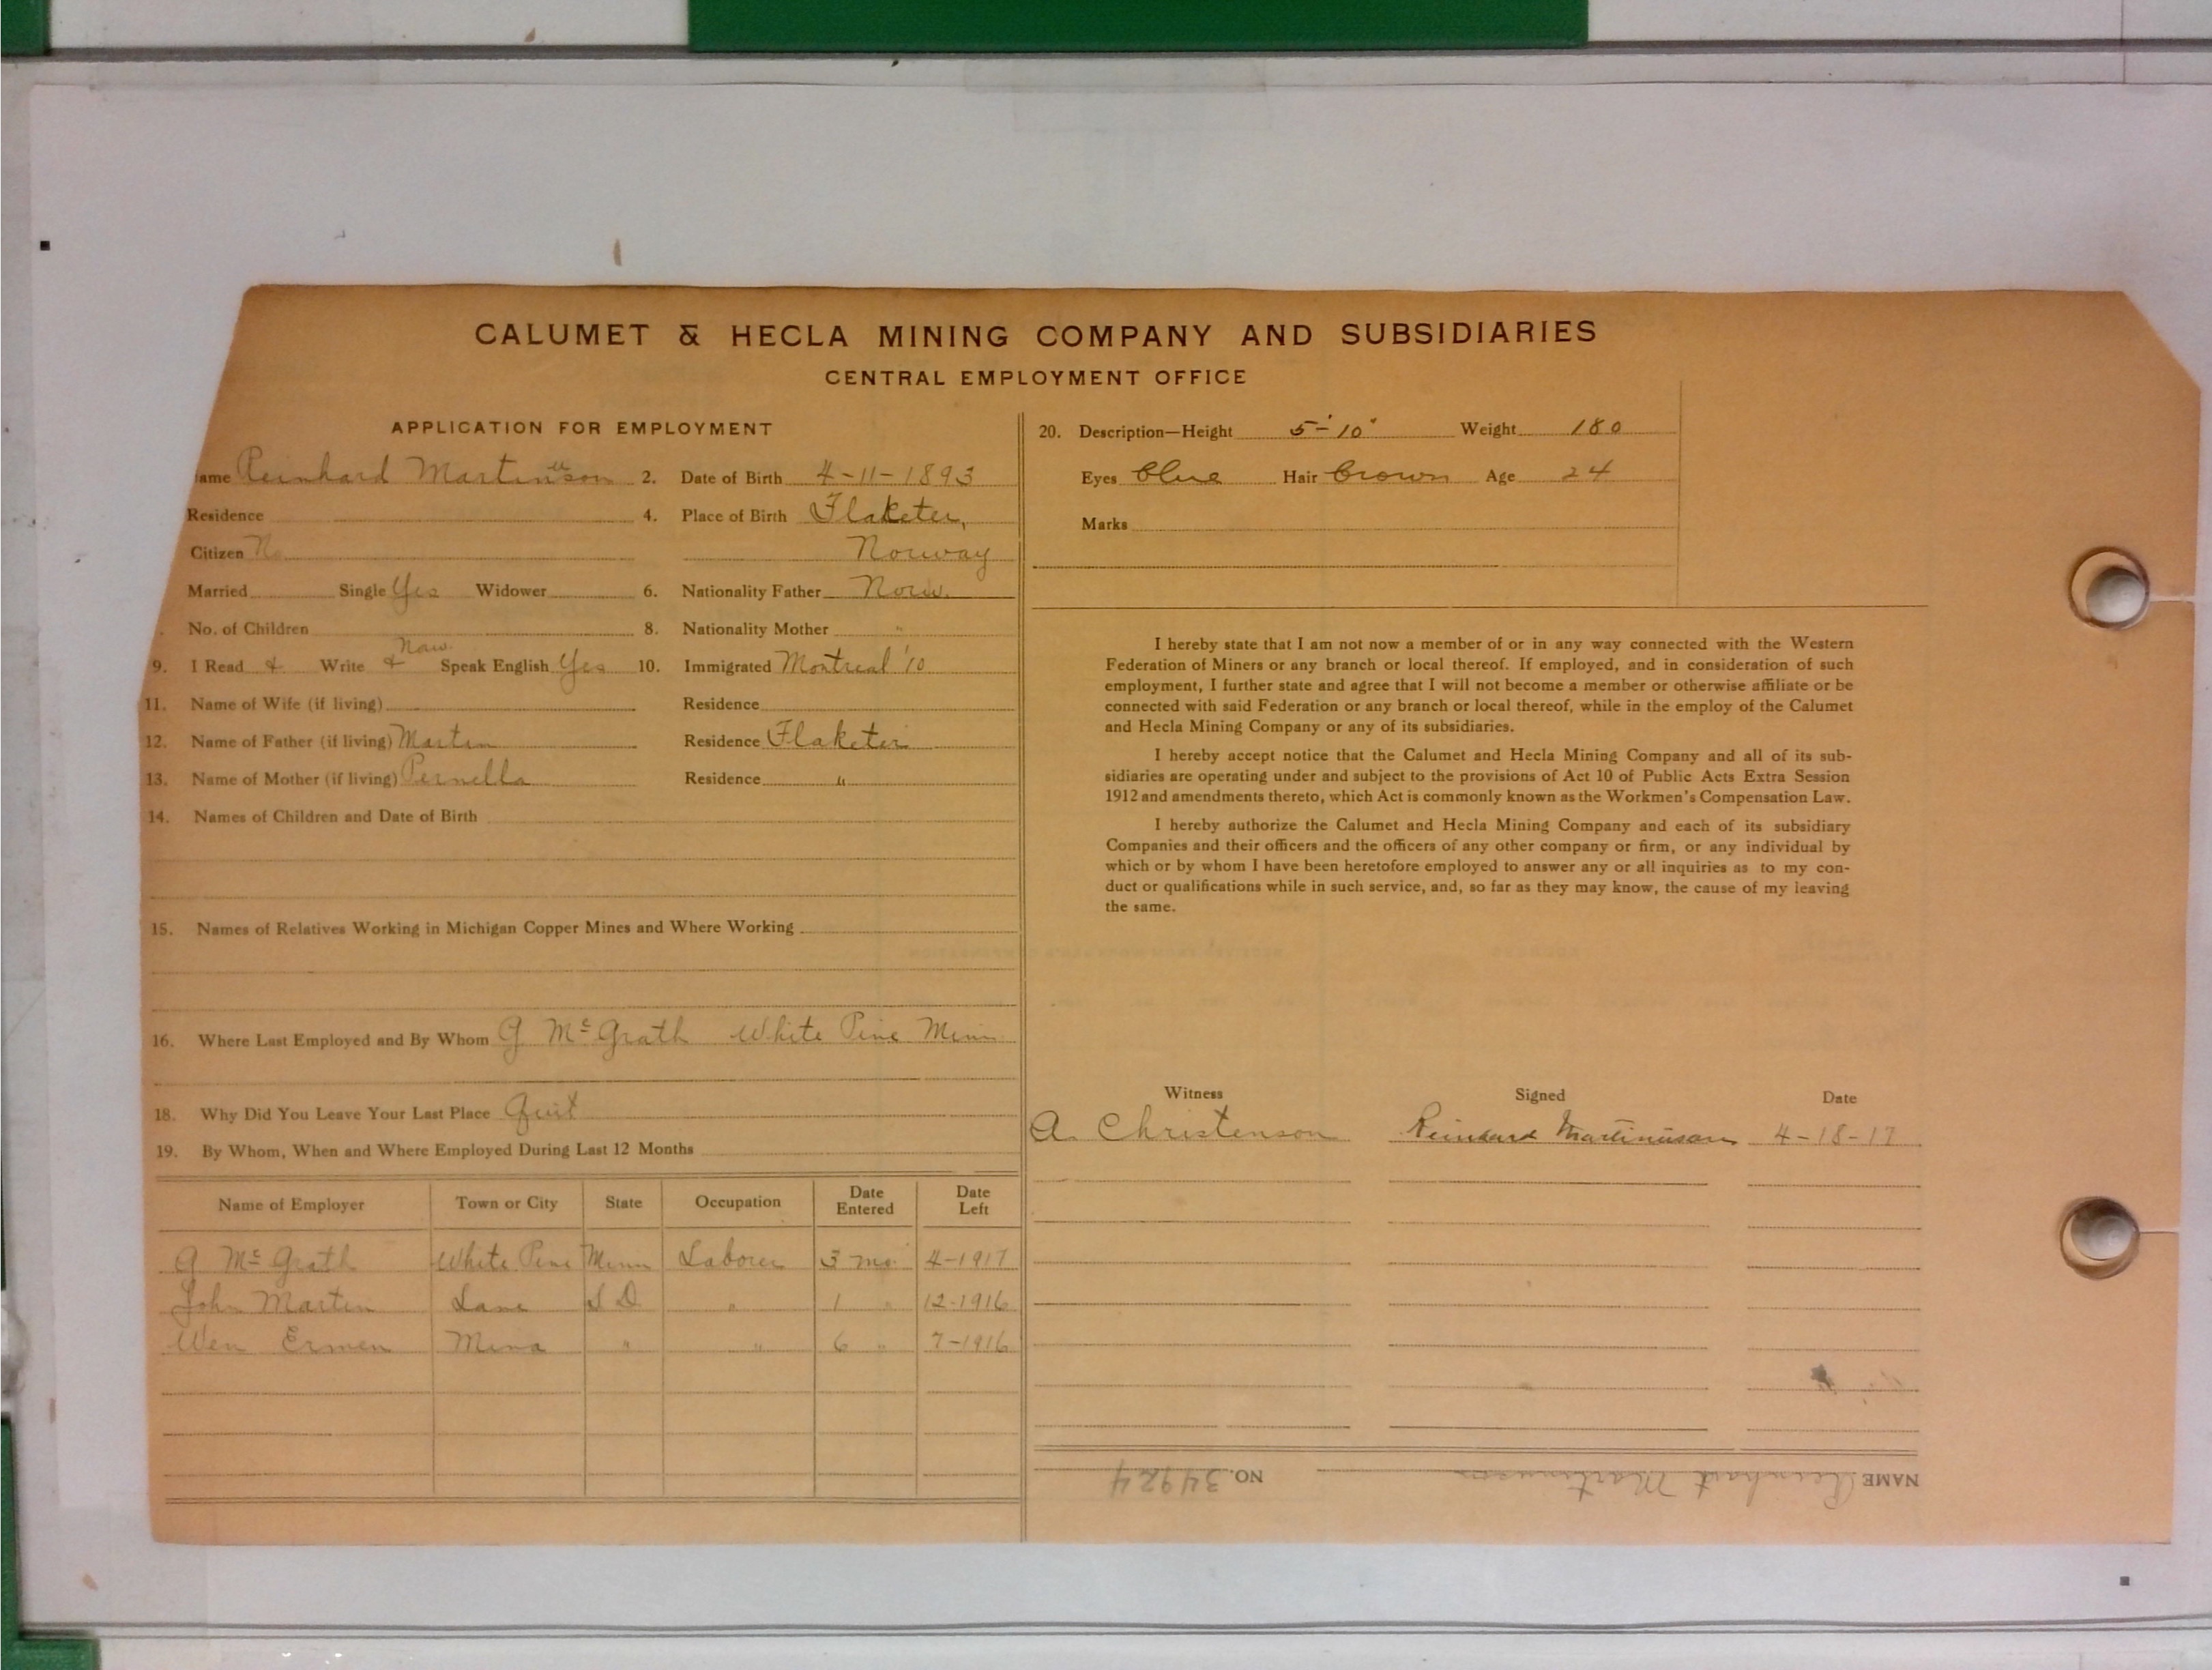 CALUMET & HECLA MINING COMPANY AND SUBSIDIARIES
CENTRAL EMPLOYMENT OFFICE
APPLICATION FOR EMPLOYMENT
ame Reinhard Martinuson 2. Date of Birth 4-11-1893
Residence 4. Place of Birth Flaketer,
Citizen No Norway
Married Single Yes Widower 6. Nationality Father Norw.
No. of Children 8. Nationality Mother "
Naw.
9. I Read & Write & Speak English Yes 10. Immigrated Montreal '10
11. Name of Wife (if living) Residence
12. Name of Father (if living) Martin Residence Flaketer
13. Name of Mother (if living) Pernella Residence "
14. Names of Children and Date of Birth
15. Names of Relatives Working in Michigan Copper Mines and Where Working
16. Where Last Employed and By Whom G McGrath White Pine Minn
18. Why Did You Leave Your Last Place Quit
19. By Whom, When and Where Employed During Last 12 Months
Name of Employer Town or City State Occupation Date Entered Date Left
G McGrath White Pine Minn Laborer 3 mo. 4-1917
John Martin Lane S D " 1 " 12-1916
Wen Ermen Mina " " 6 " 7-1916
20. Description—Height 5'-10" Weight 180
Eyes Blue Hair Brown Age 24
Marks
I hereby state that I am not now a member of or in any way connected with the Western
Federation of Miners or any branch or local thereof. If employed, and in consideration of such
employment, I further state and agree that I will not become a member or otherwise affiliate or be
connected with said Federation or any branch or local thereof, while in the employ of the Calumet
and Hecla Mining Company or any of its subsidiaries.
I hereby accept notice that the Calumet and Hecla Mining Company and all of its sub-
sidiaries are operating under and subject to the provisions of Act 10 of Public Acts Extra Session
1912 and amendments thereto, which Act is commonly known as the Workmen's Compensation Law.
I hereby authorize the Calumet and Hecla Mining Company and each of its subsidiary
Companies and their officers and the officers of any other company or firm, or any individual by
which or by whom I have been heretofore employed to answer any or all inquiries as to my con-
duct or qualifications while in such service, and, so far as they may know, the cause of my leaving
the same.
Witness Signed Date
A. Christenson Reinhard Martinuson 4-18-17
NAME Reinhart Martinuson NO. 34924